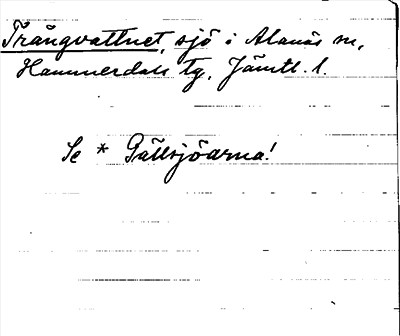 Trångvattnet, sjö i Alanäs sn,
Hammerdals tg, Jämtl. l.
Se * Gällsjöarna!